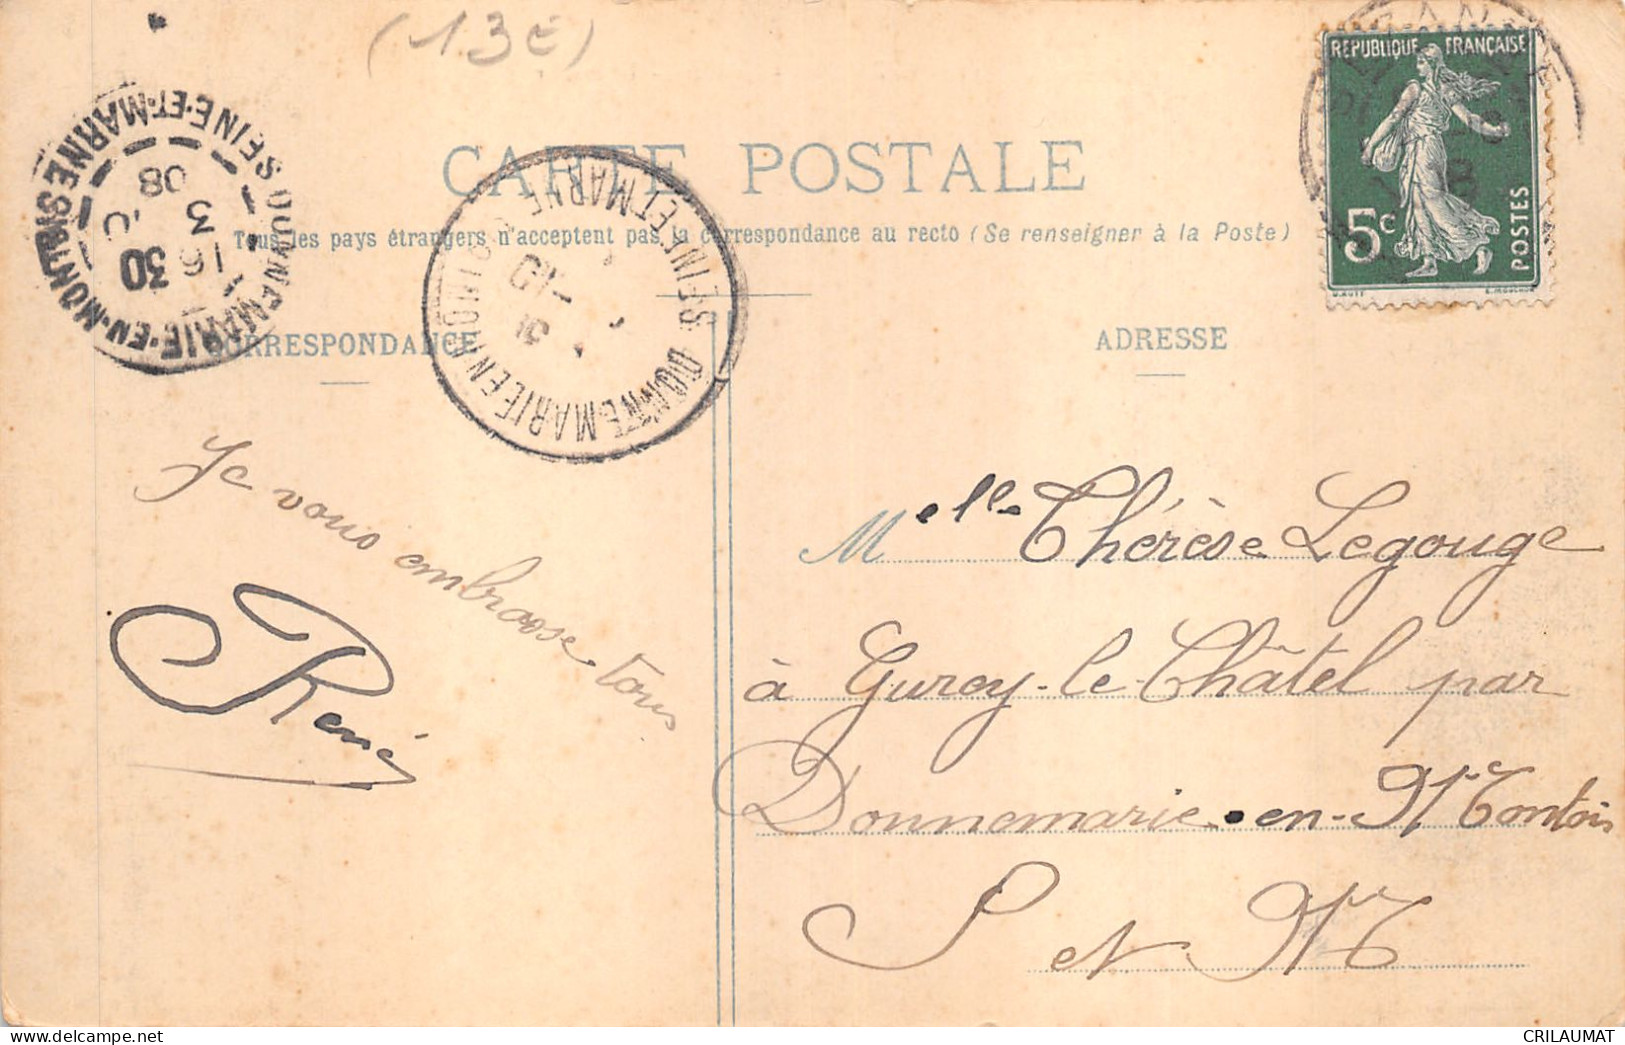 (13E)
RÉPUBLIQUE FRANÇAISE
5c
POSTES
SEINE-ET-MARNE
DONNEMARIE-EN-MONTOIS
16 30
3
08
CARTE POSTALE
Tous les pays étrangers n'acceptent pas la correspondance au recto (Se renseigner à la Poste)
DONNEMARIE EN MONTOIS
SEINE ET MARNE
CORRESPONDANCE
ADRESSE
Je vous embrasse tous
René
Melle Thérèse Legouge
à Gurcy-le-Châtel par
Donnemarie-en-Montois
S et M
CRILAUMAT